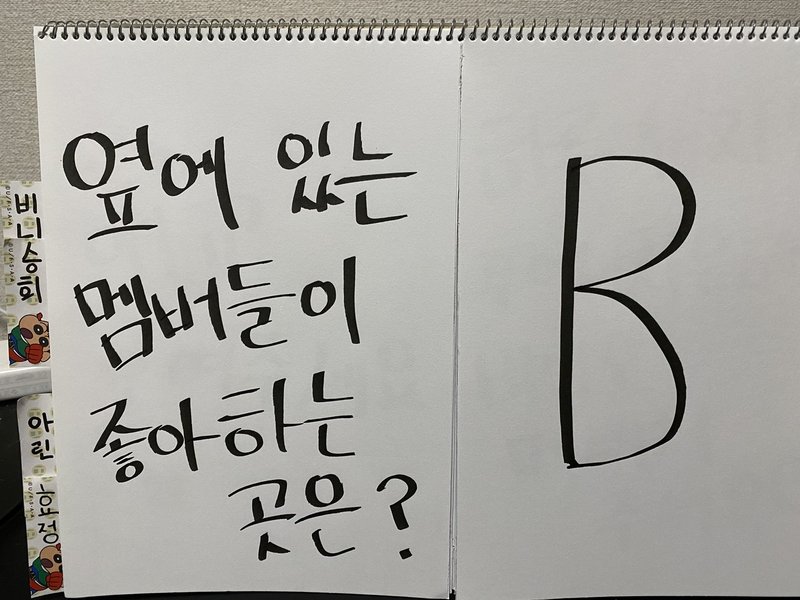 옆에 있는
멤버들이
좋아하는
곳은?
B
비니
승희
아린
효정